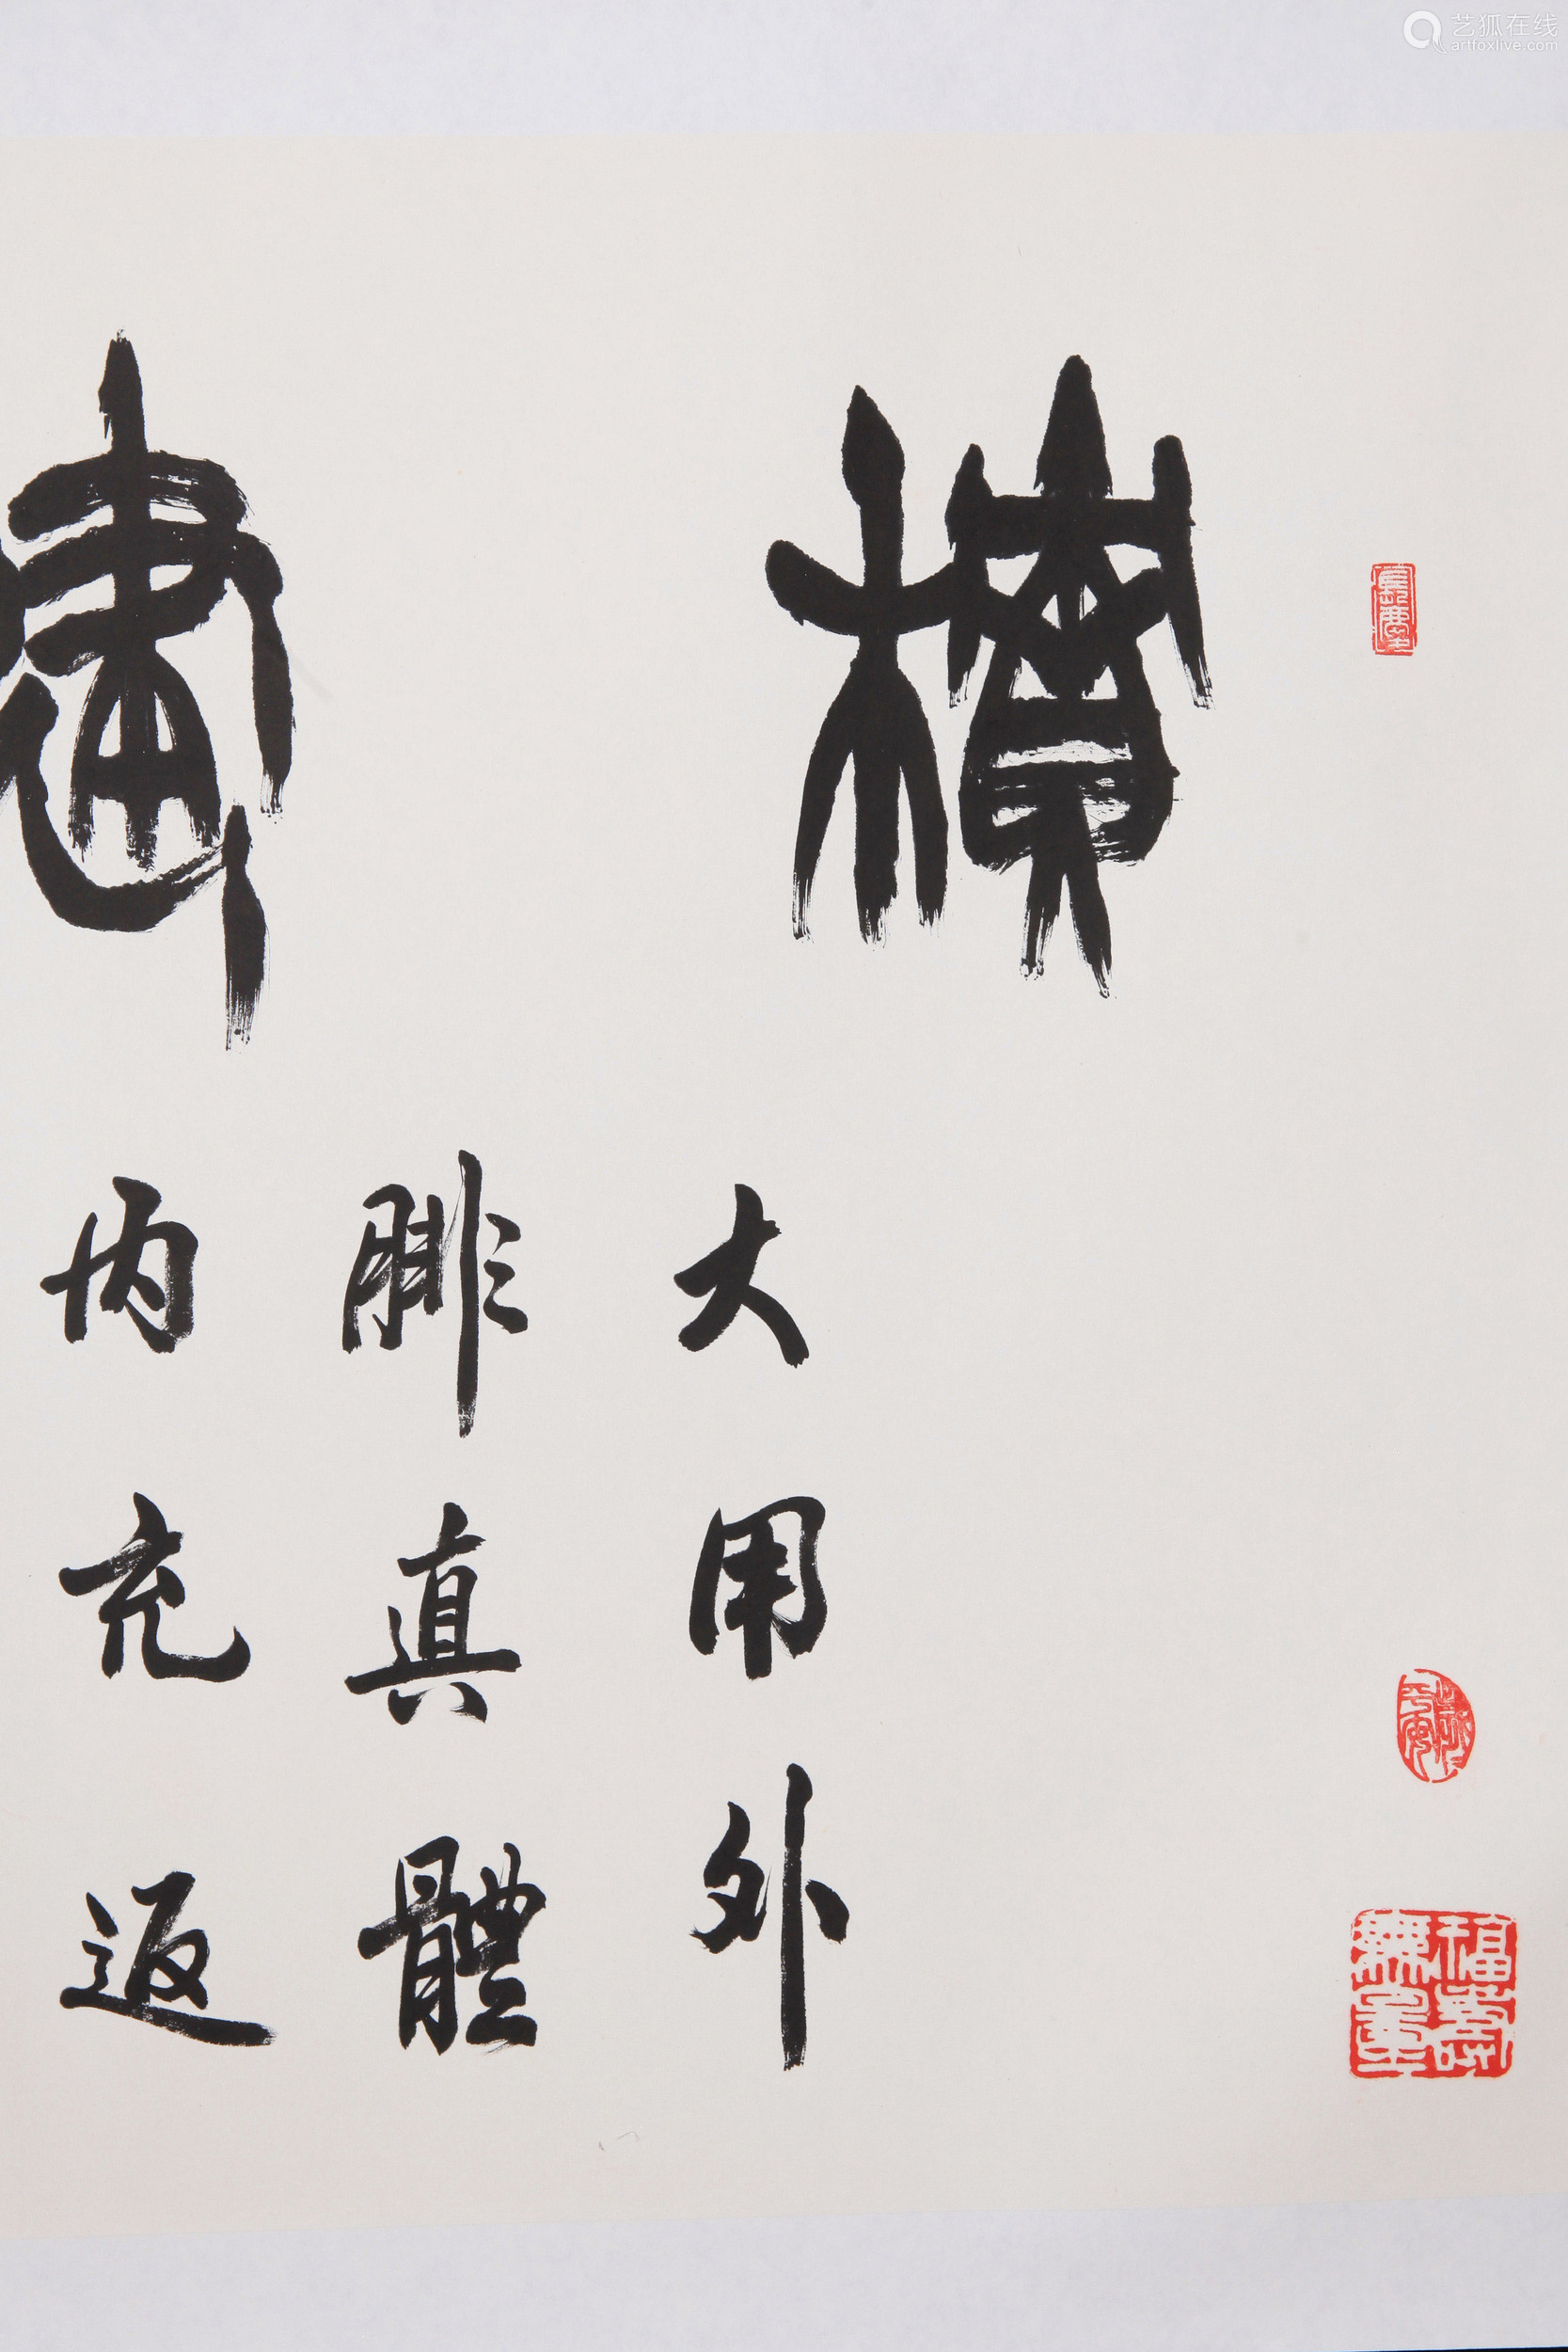 艺狐在线
artfoxlive.com
横
建
大用外
腓真體
内充返
福壽無量